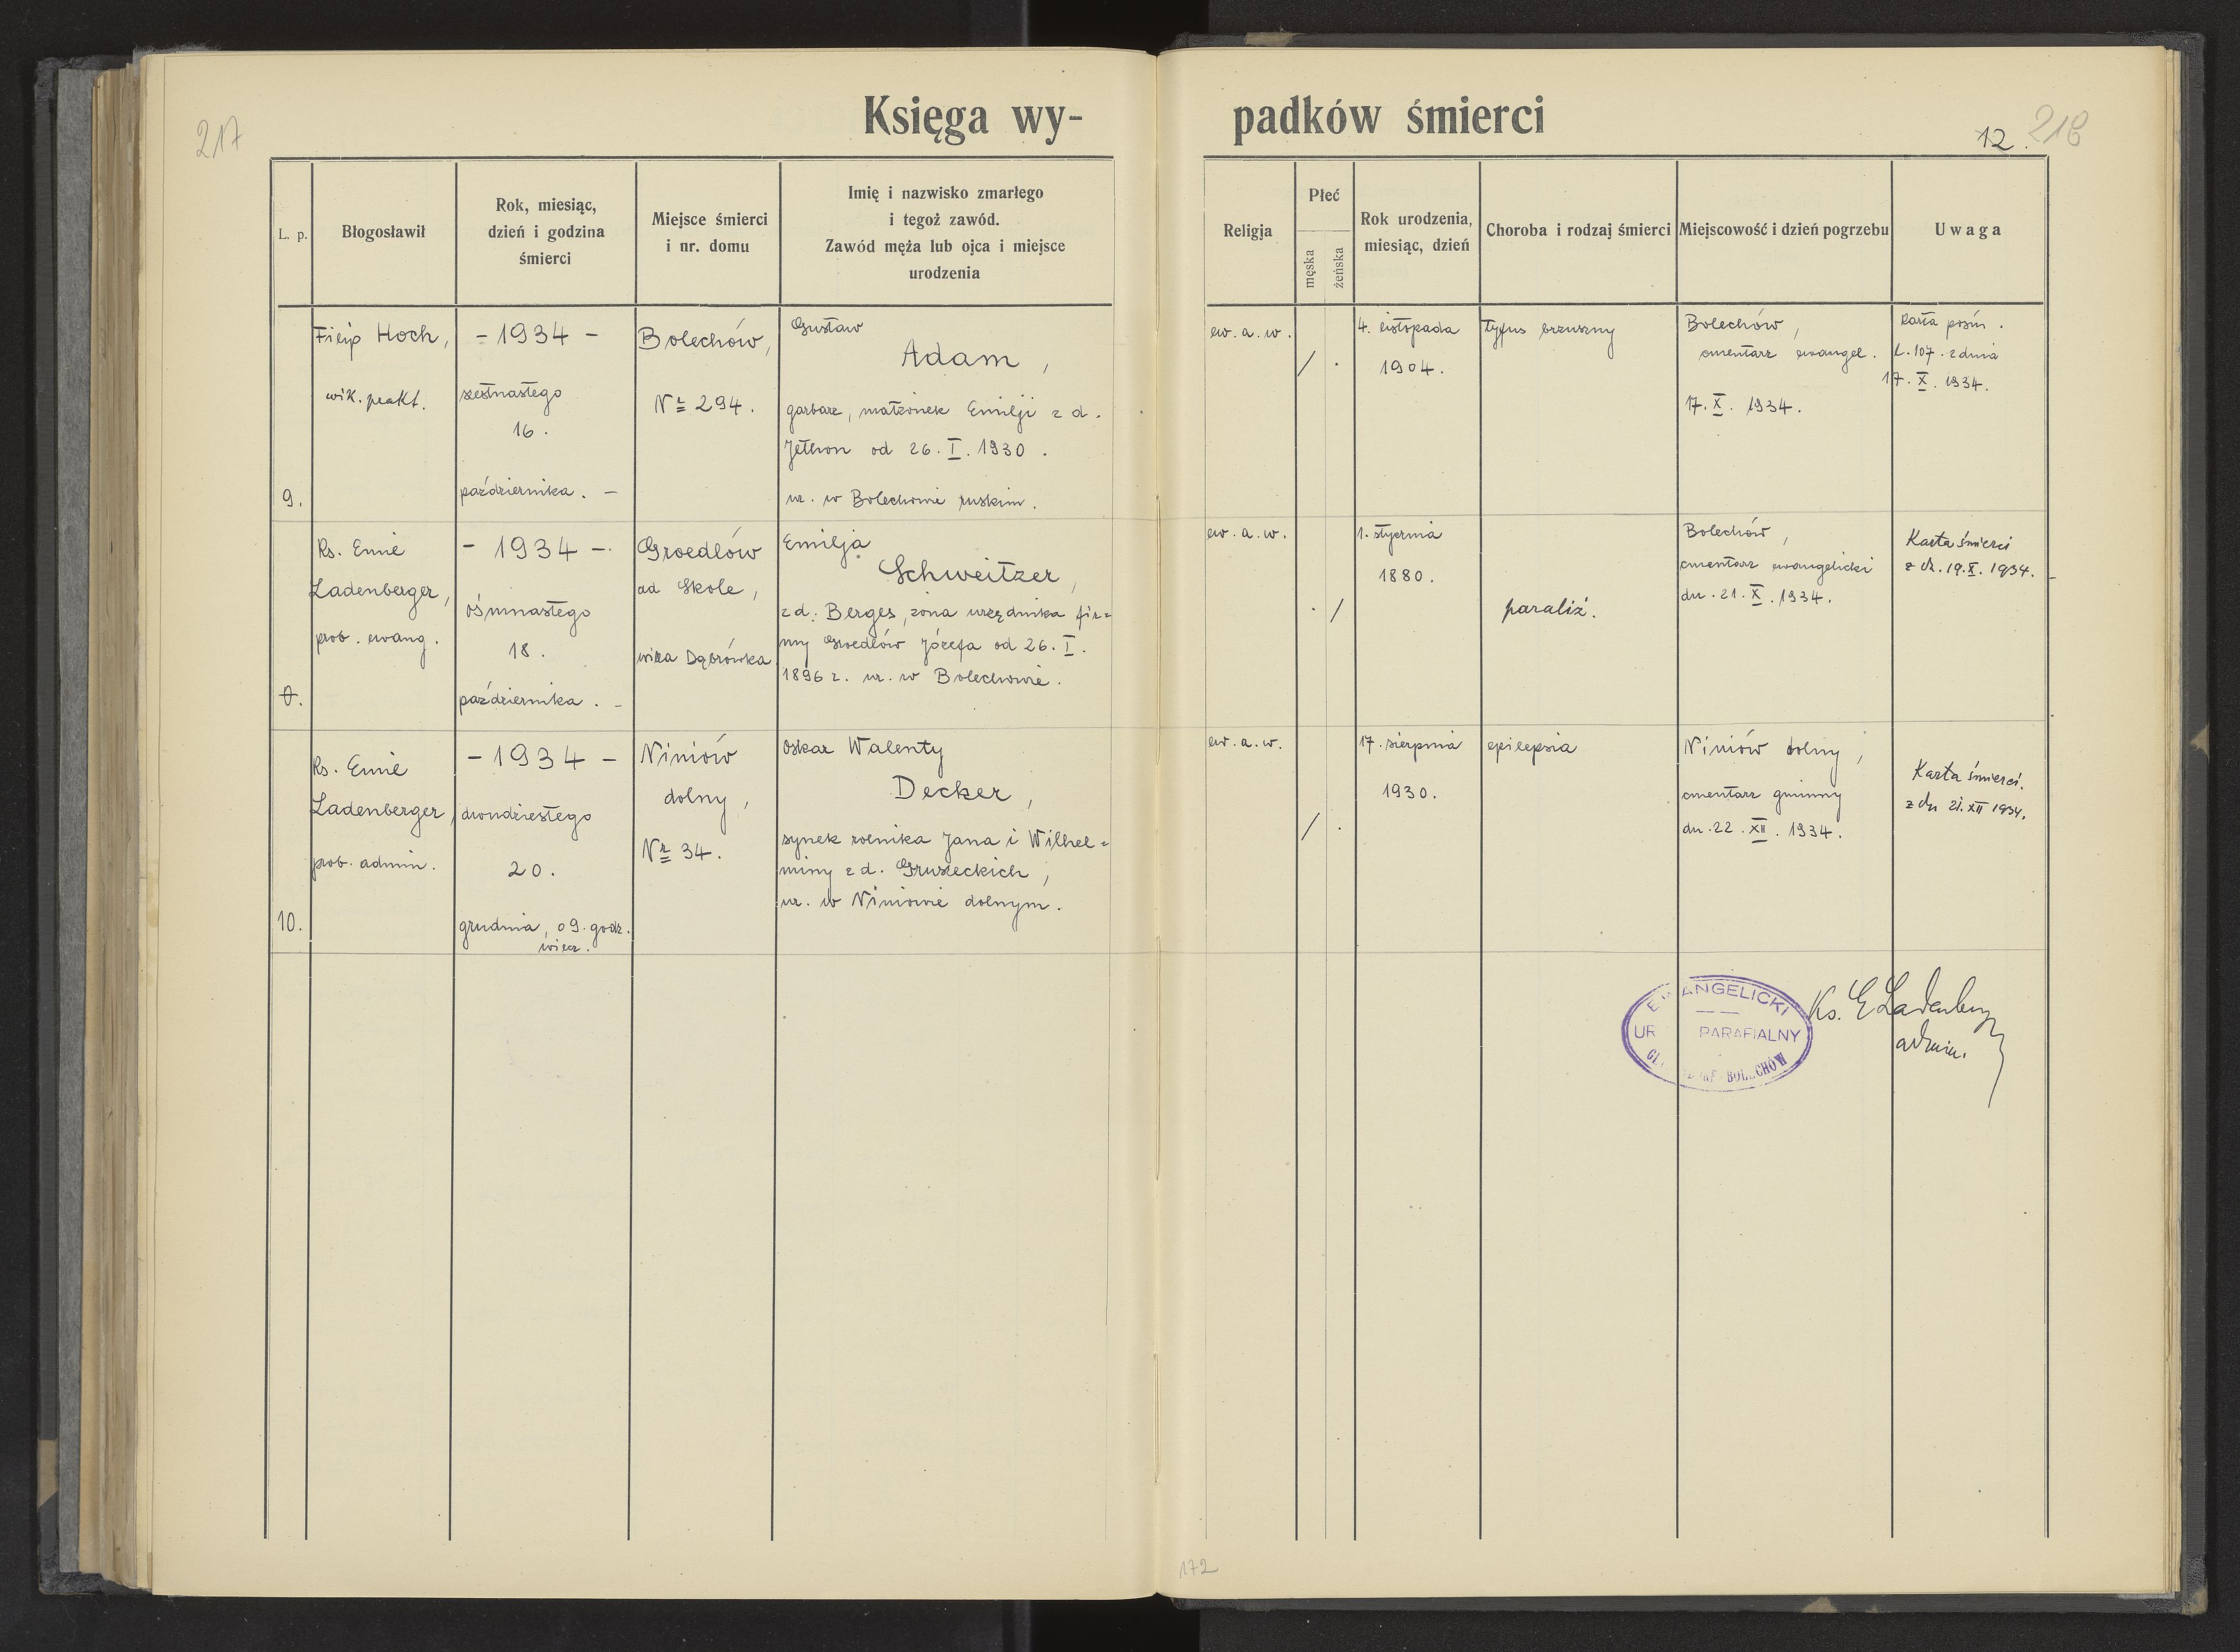 217
Księga wy-
padków śmierci
12.
218
L. p.
Błogosławił
Rok, miesiąc,
dzień i godzina
śmierci
Miejsce śmierci
i nr. domu
Imię i nazwisko zmarłego
i tegoż zawód.
Zawód męża lub ojca i miejsce
urodzenia
Religja
Płeć
męska
żeńska
Rok urodzenia,
miesiąc, dzień
Choroba i rodzaj śmierci
Miejscowość i dzień pogrzebu
Uwaga
9.
Filip Hoch,
wik. prakt.
- 1934 -
szesnastego
16.
października. -
Bolechów,
Nr 294.
Gustaw
Adam,
garbarz, małżonek Emilji z d.
Jethon od 26. I. 1930.
ur. w Bolechowie ruskim.
ew. a. w.
/ .
4. listopada
1904.
tyfus brzuszny
Bolechów,
cmentarz ewangel.
17. X. 1934.
karta pośm.
l. 107. z dnia
17. X. 1934.
0.
Ks. Emil
Ladenberger,
prob. ewang.
- 1934 -
ośmnastego
18.
października. -
Groedlów
ad Skole,
willa Dąbrówka
Emilja
Schweitzer,
z d. Berges, żona urzędnika fir=
my Groedlów Józefa od 26. I.
1896 r. ur. w Bolechowie.
ew. a. w.
. /
1. stycznia
1880.
paraliż.
Bolechów,
cmentarz ewangelicki
dn. 21. X. 1934.
Karta śmierci
z dn. 19. X. 1934.
10.
Ks. Emil
Ladenberger,
prob. admin.
- 1934 -
dwudziestego
20.
grudnia, o 9. godz.
wiecz.
Niniów
dolny,
Nr 34.
Oskar Walenty
Decker,
synek rolnika Jana i Wilhel=
miny z d. Gruszeckich,
ur. w Niniowie dolnym.
ew. a. w.
/ .
17. sierpnia
1930.
epilepsia
Niniów dolny,
cmentarz gminny
dn. 22. XII. 1934.
Karta śmierci.
z dn 21. XII 1934.
EWANGELICKI
UR PARAFIALNY
BOLECHÓW
Ks. E Ladenberger
admin.
172